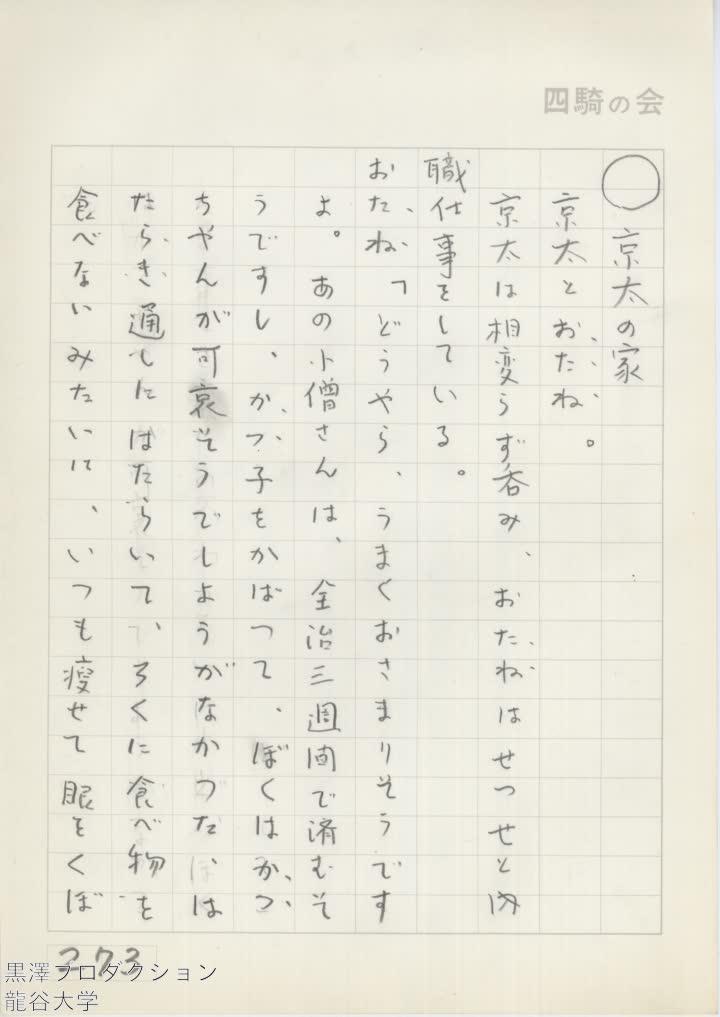 四騎の会
○京太の家
京太とおたね。
京太は相変らず呑み、おたねはせつせと内
職仕事をしている。
おたね「どうやら、うまくおさまりそうです
よ。あの小僧さんは、全治三週間で済むそ
うですし、かつ子をかばつて、ぼくはかつ
ちやんが可哀そうでしようがなかつた、は
たらき通しにはたらいて、ろくに食べ物を
食べないみたいに、いつも痩せて眼をくぼ
273
黒澤プロダクション
龍谷大学